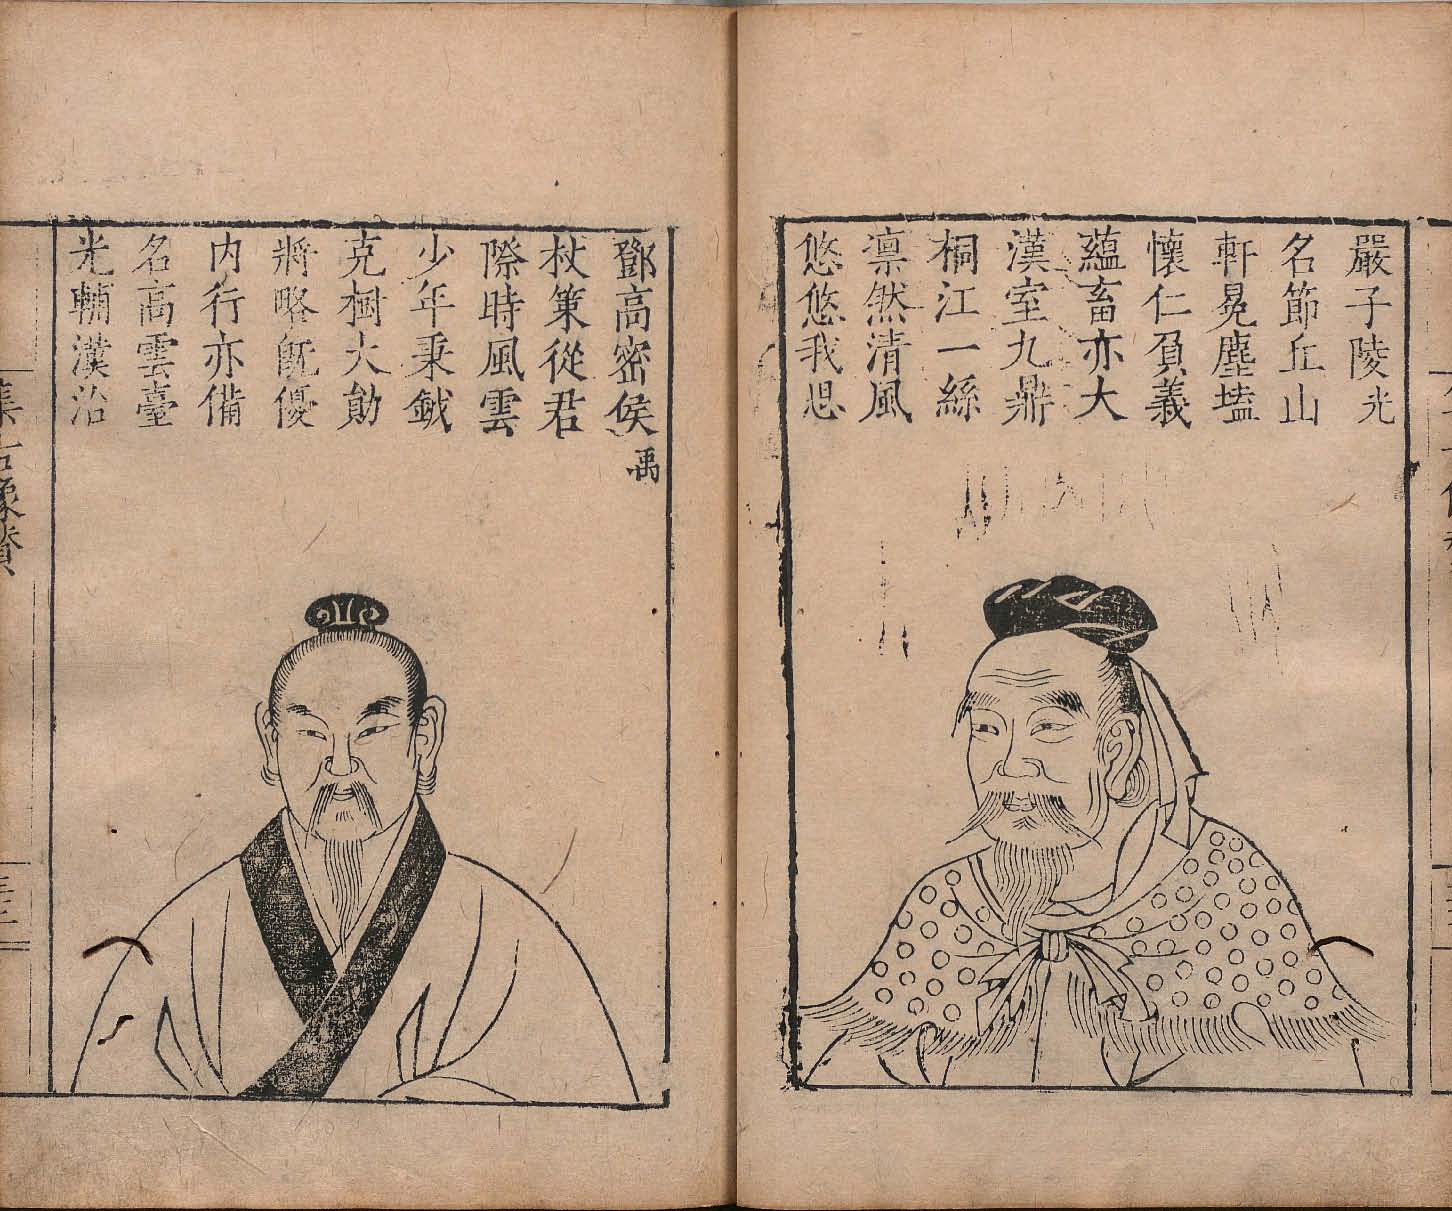 嚴子陵光
名節丘山
軒冕塵壒
懷仁負義
蘊畜亦大
漢室九鼎
桐江一絲
凛然清風
悠悠我思
鄧高密侯禹
杖策從君
際時風雲
少年秉鉞
克樹大勛
將略旣優
内行亦備
名高雲臺
光輔漢治
集古像贊